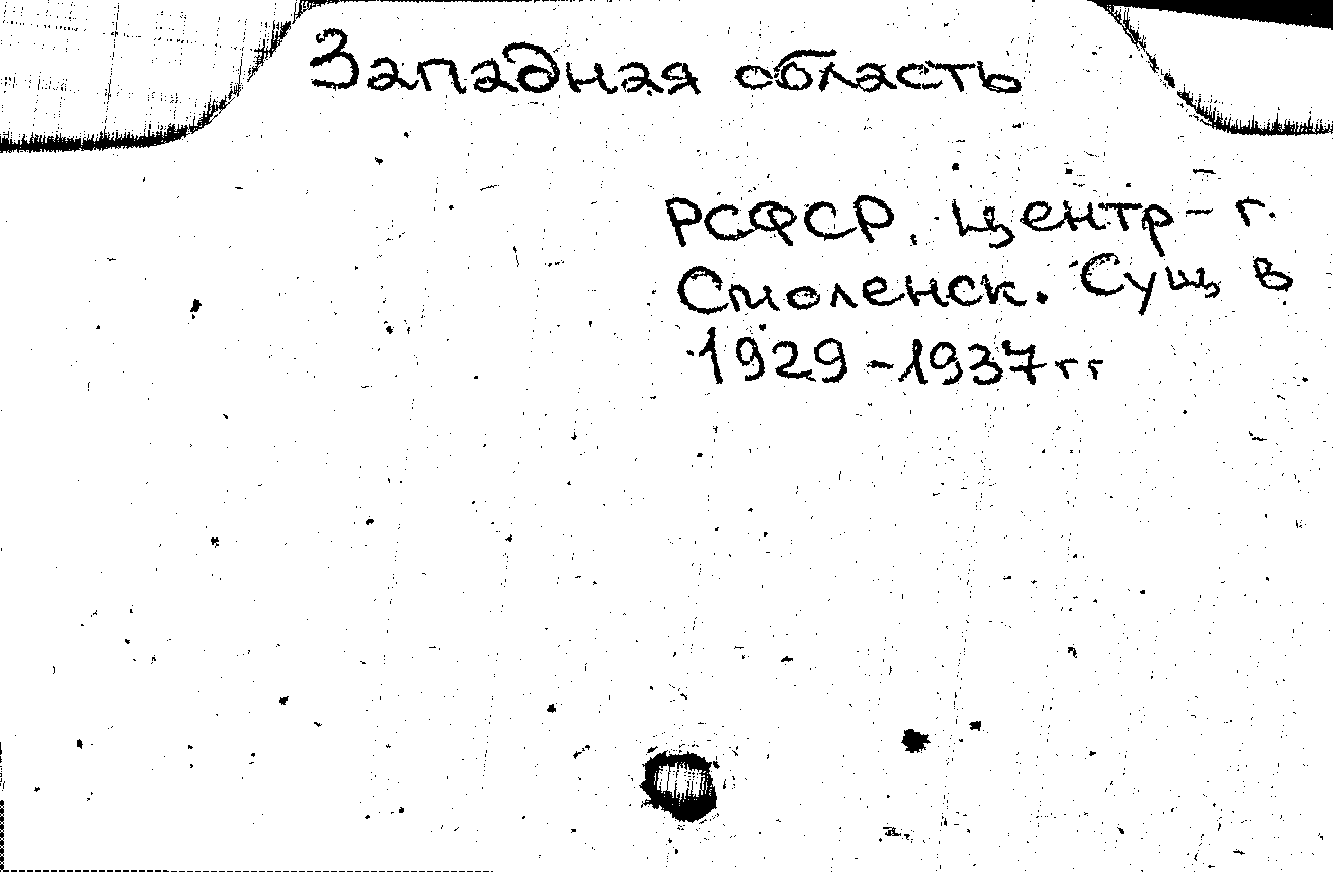 Западная область
РСФСР. Центр - г.
Смоленск. Сущ в
1929-1937 гг